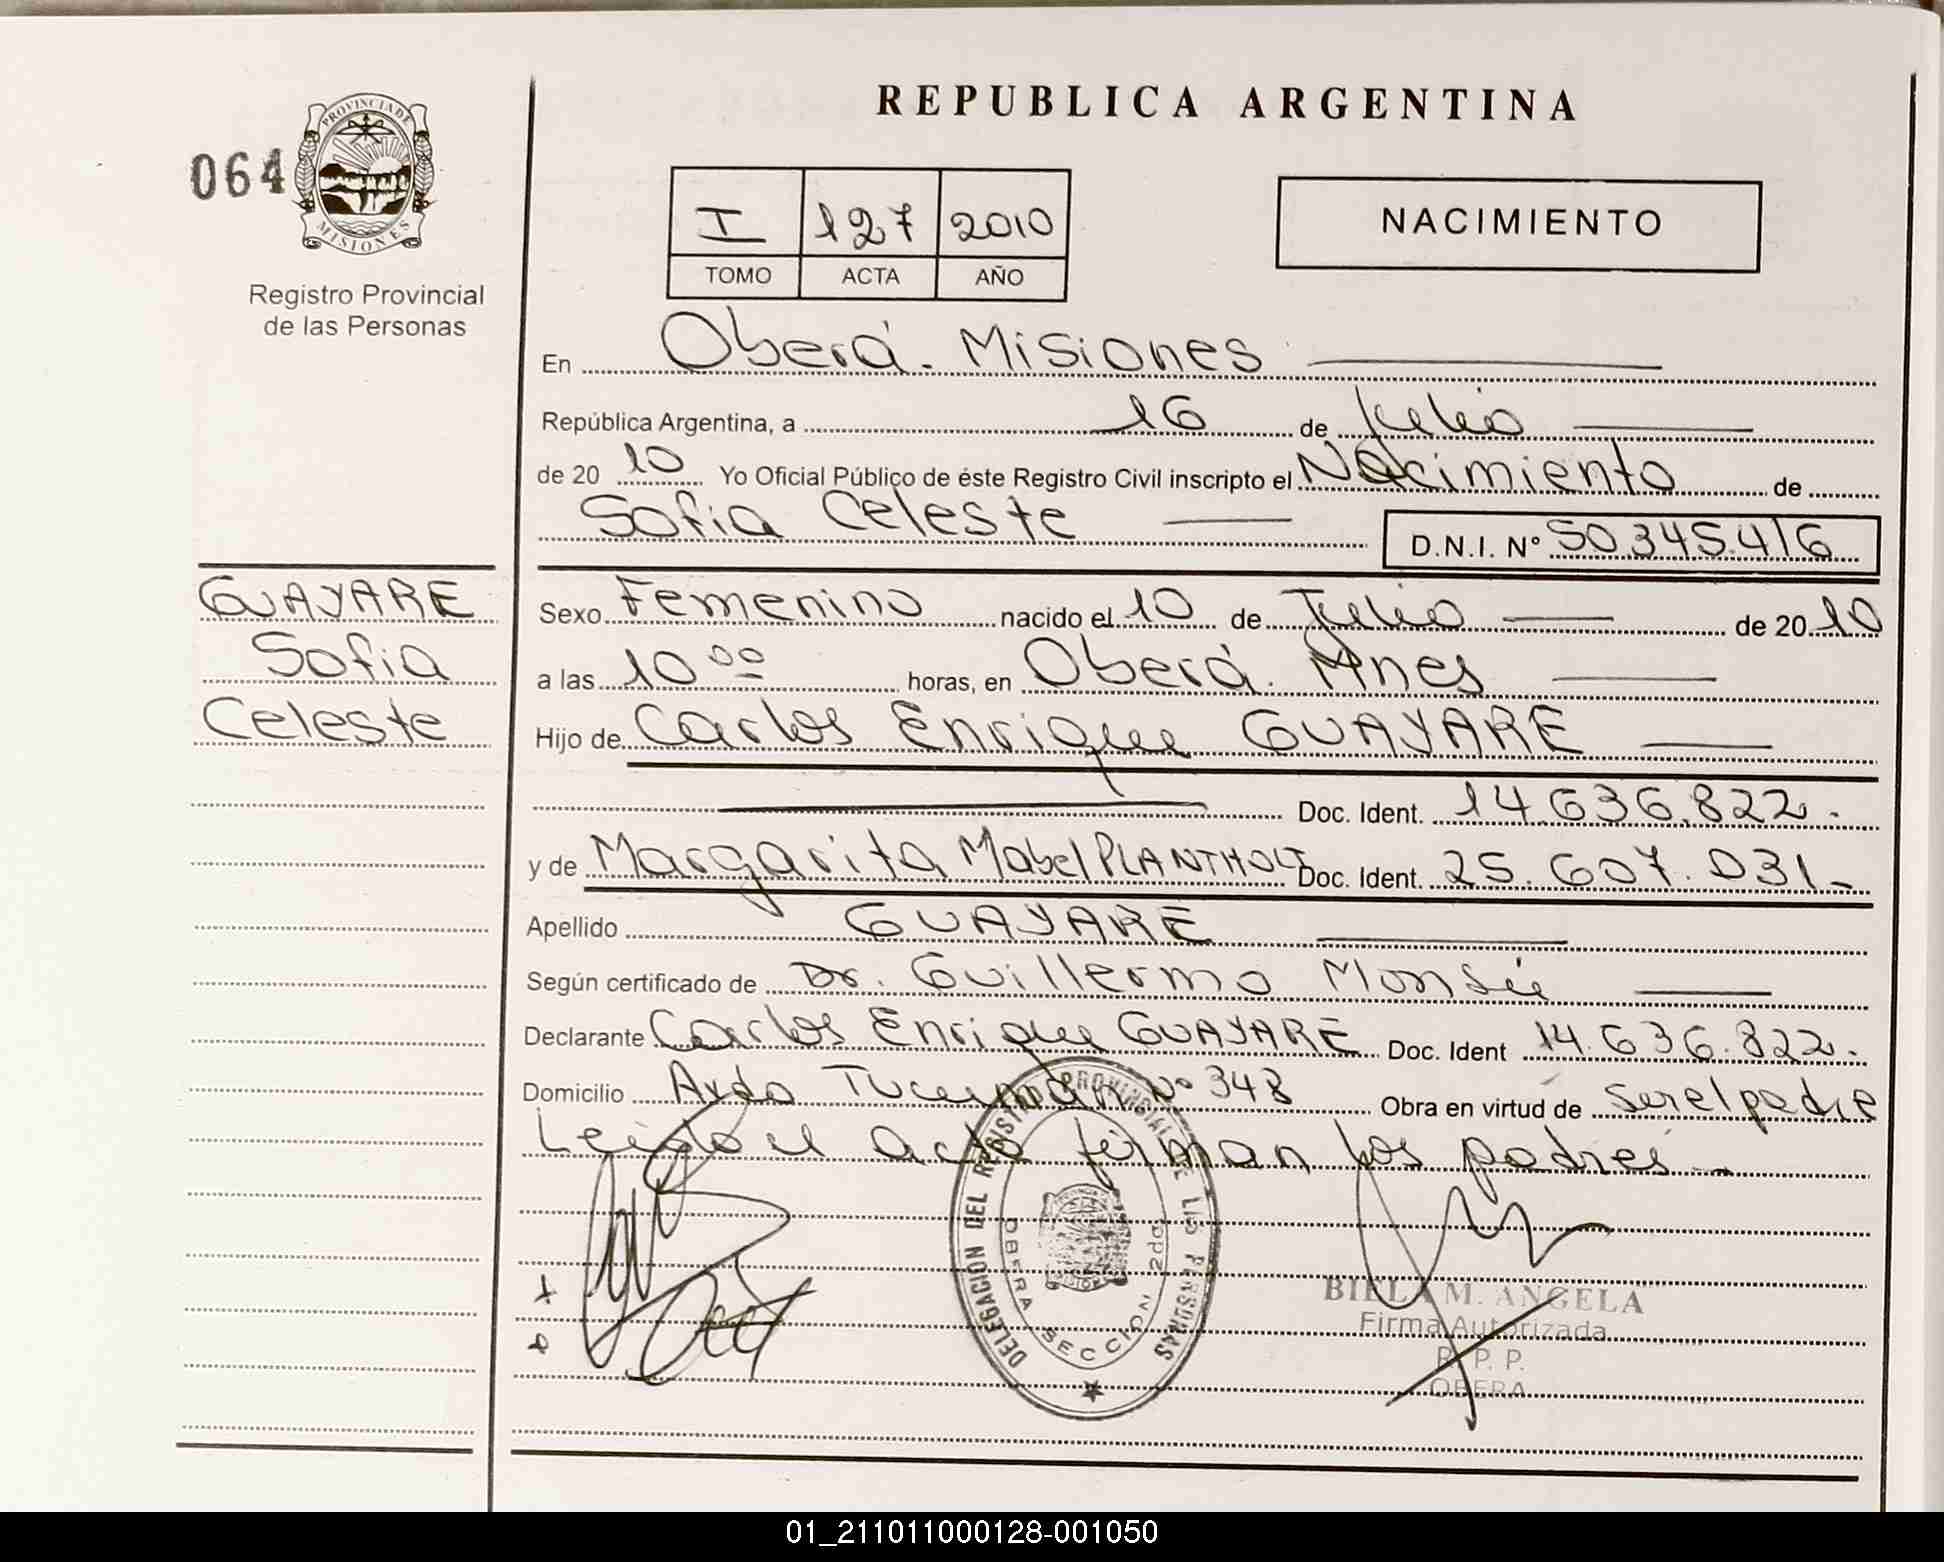 REPUBLICA ARGENTINA
064
PROVINCIA DE MISIONES
Registro Provincial
de las Personas
I 127 2010
TOMO ACTA AÑO
NACIMIENTO
En Oberá. Misiones
República Argentina, a 16 de Julio
de 20 10 Yo Oficial Público de éste Registro Civil inscripto el Nacimiento de
Sofia Celeste D.N.I. Nº 50.345.416
GUAYARE
Sofia
Celeste
Sexo Femenino nacido el 10 de Julio de 20 10
a las 10 00 horas, en Oberá. Mnes
Hijo de Carlos Enrique GUAYARE
Doc. Ident. 14.636.822.
y de Margarita Mabel PLANTHOLT Doc. Ident. 25.607.031-
Apellido GUAYARE
Según certificado de Dr. Guillermo
Declarante Carlos Enrique GUAYARE Doc. Ident 14.636.822.
Domicilio Avda Tucumán Nº 348 Obra en virtud de ser el padre
Leido el acta firman los padres
DELEGACION DEL REGISTRO PROVINCIAL DE LAS PERSONAS
OBERA SECCION 2da
BIELA M. ANGELA
Firma Autorizada
R. P. P.
OBERA
01_211011000128-001050